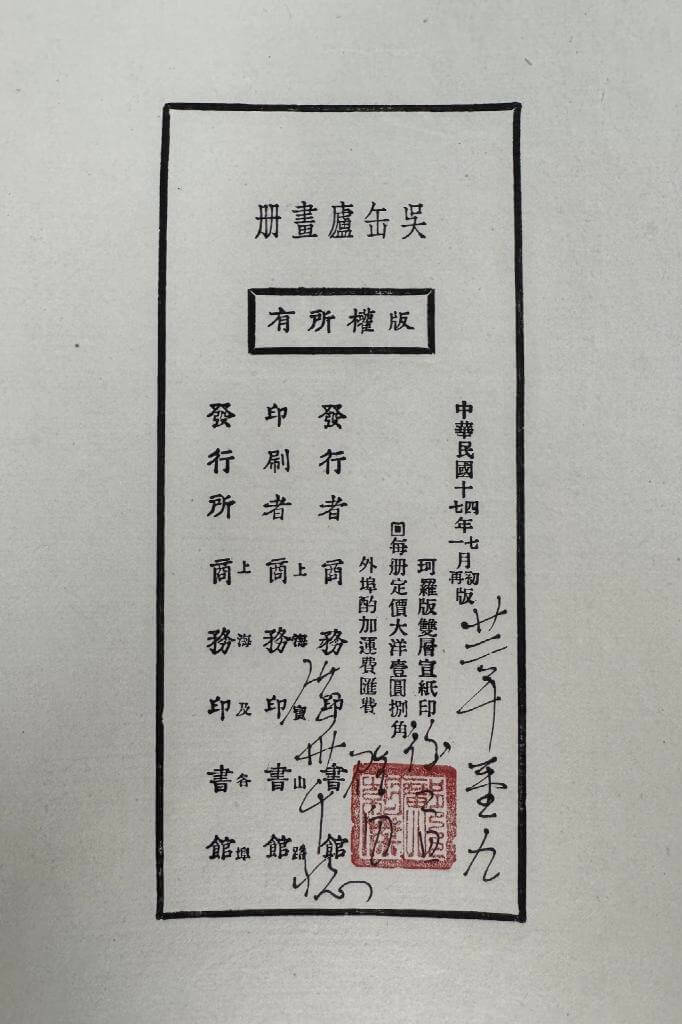 吳缶廬畫册
版權所有
中華民國十四七年七一月初再版
珂羅版雙層宣紙印
每册定價大洋壹圓捌角
外埠酌加運費匯費
發行者 商務印書館
印刷者 上海寶山路 商務印書館
發行所 上海及各埠 商務印書館
重九